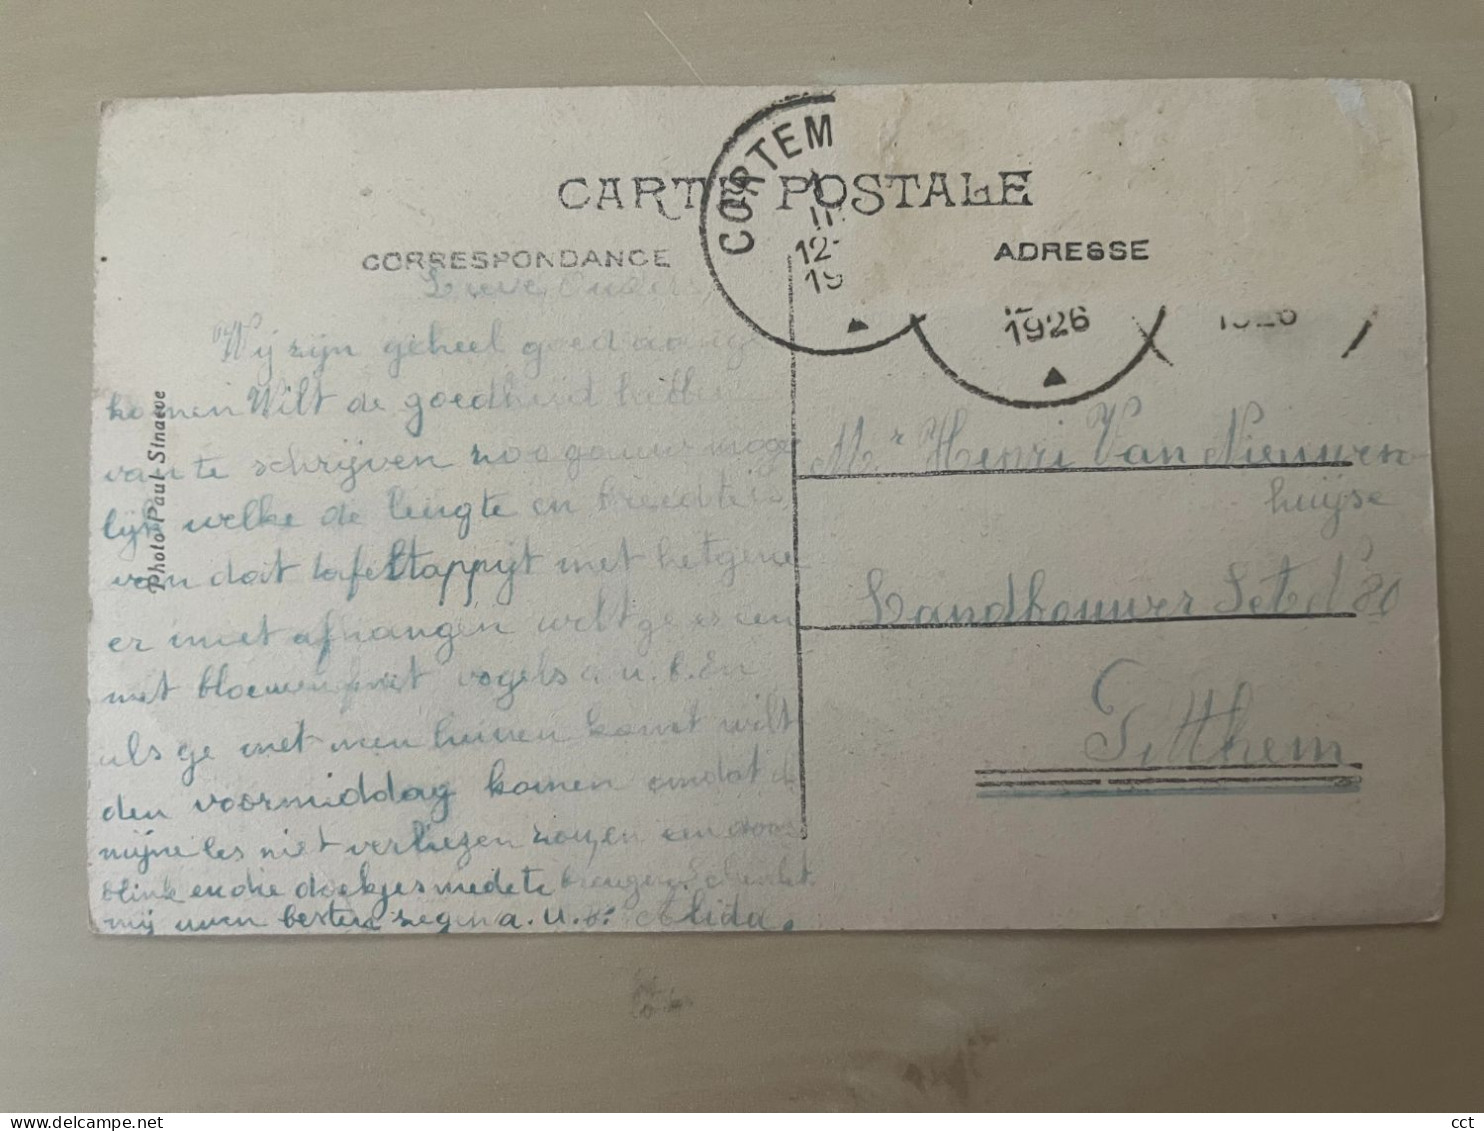 CARTE POSTALE
CORRESPONDANCE
ADRESSE
CORTEM
12-
19
1926
1926
Photo Paul Sinaeve
Lieve Ouders,
Wij zijn geheel goed aange
komen Wilt de goedheid hebben
van te schrijven zoogauw moge
lijk welke de lengte en breedte is
van dat tafeltappijt met hetgene
er moet afhangen wilt ge er een
met bloemen met vogels a.u.b. En
als ge met men komt wilt
den voormiddag komen omdat
mijne les niet verliezen zou, en een doos
blink en die doekjes mede te brengen. Schenkt
mij uwen besten zegen a.u.b. Alida.
Mr Henri Van Nieuwen
huijse
Landhouwer Set d' 80
Pitthem
cct